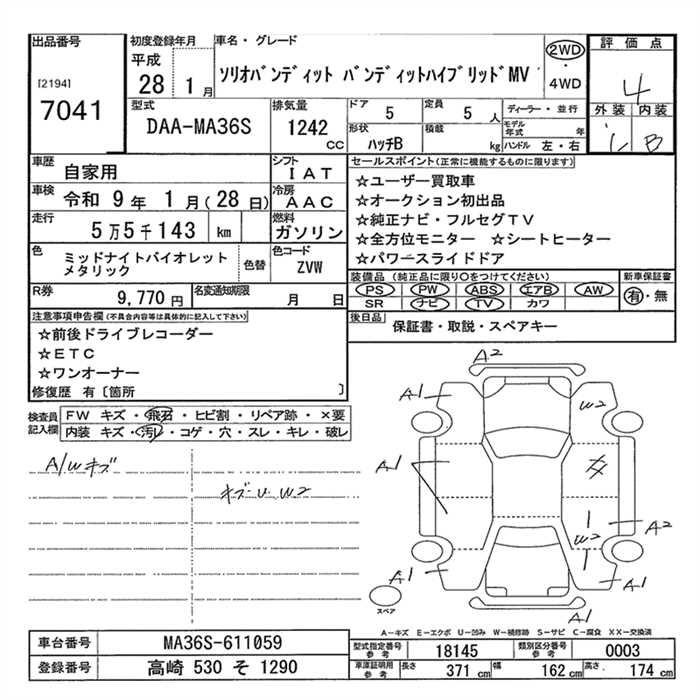 出品番号
[2194]
7041
初度登録年月
平成
28 1月
車名・グレード
ソリオバンディット バンディットハイブリッドMV
2WD
・
4WD
評価点
4
外装 内装
B
型式
DAA-MA36S
排気量
1242
CC
ドア
5
定員
5人
ディーラー・並行
形状
ハッチB
積載
kg
モデル年式
年
ハンドル 左・右
車歴
自家用
シフト
IAT
車検
令和 9年 1月(28日)
冷房
AAC
走行
5万5千143 km
燃料
ガソリン
色
ミッドナイトバイオレット
メタリック
色替
色コード
ZVW
R券
9,770円
名変通知期限
月 日
セールスポイント(正常に機能するものに限ります)
☆ユーザー買取車
☆オークション初出品
☆純正ナビ・フルセグTV
☆全方位モニター ☆シートヒーター
☆パワースライドドア
装備品 (純正品に限り○をつけてください)
PS PW ABS エアB AW
SR ナビ TV カワ
新車保証書
有・無
後日品
保証書・取説・スペアキー
注意事項申告欄(不具合内容等は具体的に記入して下さい)
☆前後ドライブレコーダー
☆ETC
☆ワンオーナー
修復歴 有〔箇所 〕
検査員
記入欄
FW キズ・飛石・ヒビ割・リペア跡・×要
内装 キズ・汚レ・コゲ・穴・スレ・キレ・破レ
A/Wキズ
キズ・U W2
A2
A1
W2
A1
A1
W2
A2
A1
A1
A1
スペア
A-キズ E-エクボ U-凹み W-補修跡 S-サビ C-腐食 XX-交換済
車台番号
MA36S-611059
登録番号
高崎 530 そ 1290
型式指定番号
参考
18145
類別区分番号
参考
0003
車庫証明用
参考
長さ 371 cm
幅 162 cm
高さ 174 cm